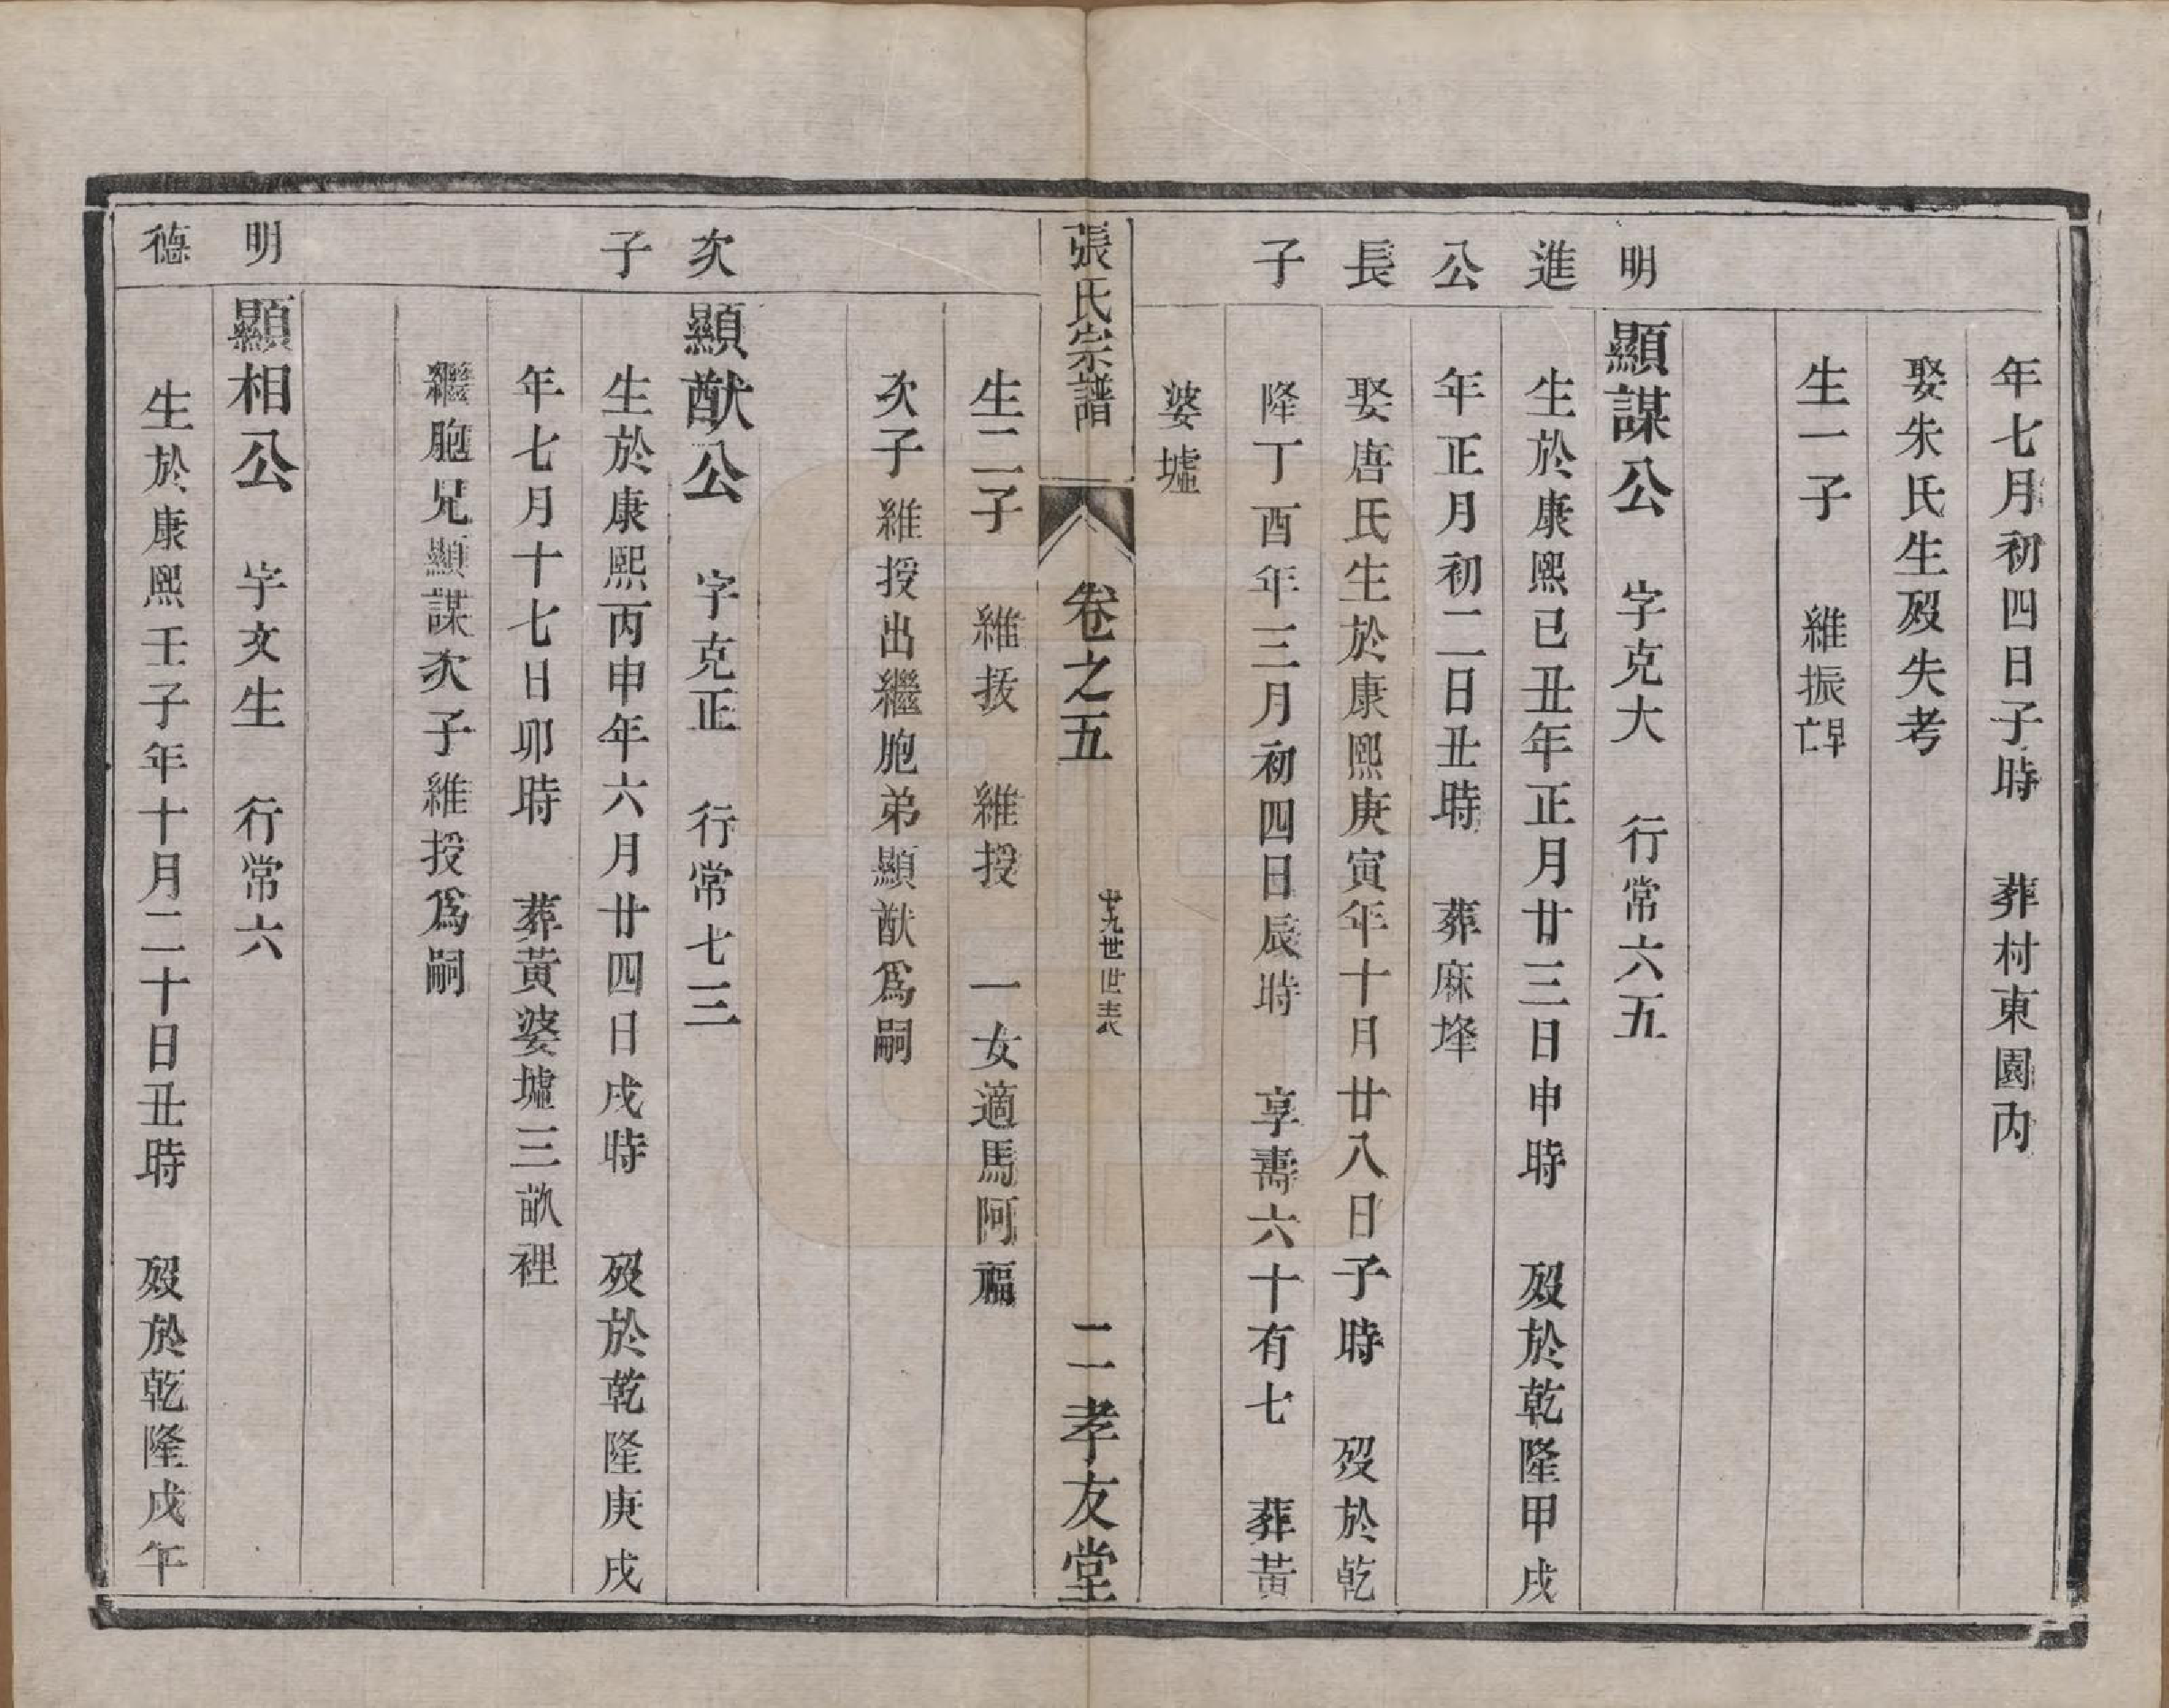 年七月初四日子時　葬村東園内
娶朱氏生歿失考
生一子　維振早亡
明進公長子
顯謀公　字克大　行常六五
生於康熙己丑年正月廿三日申時　歿於乾隆甲戌
年正月初二日丑時　葬麻埄
娶唐氏生於康熙庚寅年十月廿八日子時　歿於乾
隆丁酉年三月初四日辰時　享壽六十有七　葬黃
婆墟
張氏宗譜　卷之五　廿九世世表　二　孝友堂
生二子　維拔　維授　一女適馬阿福
次子維授出繼胞弟顯猷爲嗣
次子
顯猷公　字克正　行常七三
生於康熙丙申年六月廿四日戌時　歿於乾隆庚戌
年七月十七日卯時　葬黃婆墟三畝裡
繼胞兄顯謀次子維授爲嗣
明德
顯相公　字文生　行常六
生於康熙壬子年十月二十日丑時　歿於乾隆戊午